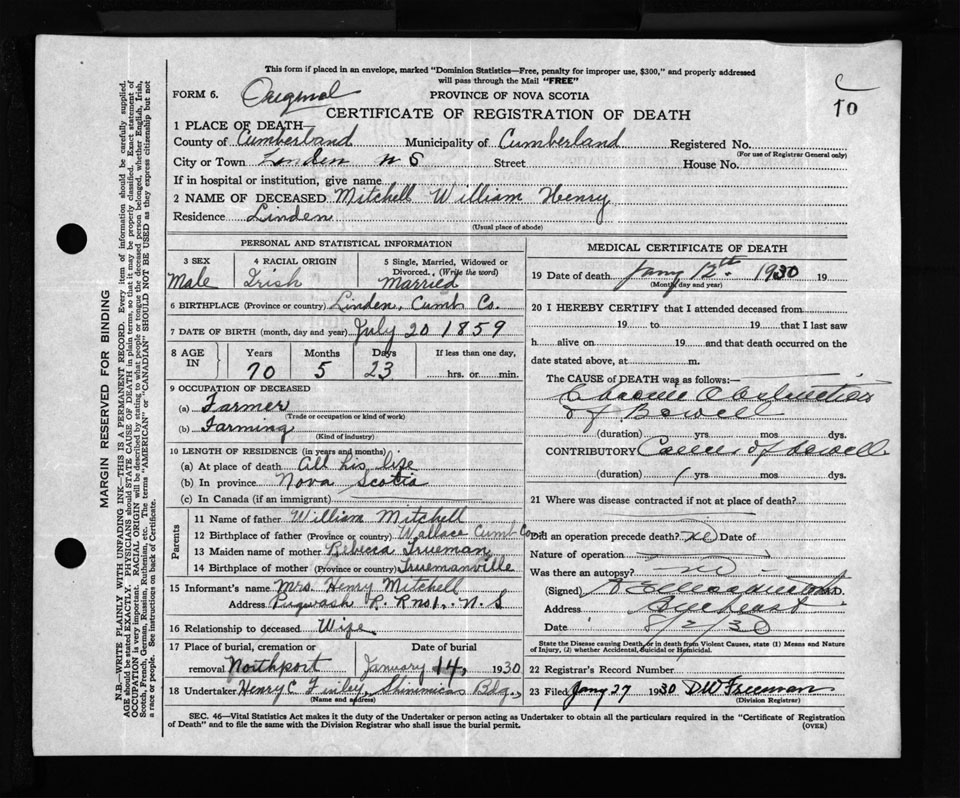 This form if placed in an envelope, marked "Dominion Statistics—Free, penalty for improper use, $300," and properly addressed
will pass through the Mail "FREE"
FORM 6. Original PROVINCE OF NOVA SCOTIA
C
10
CERTIFICATE OF REGISTRATION OF DEATH
1 PLACE OF DEATH—
County of Cumberland Municipality of Cumberland Registered No.
(For use of Registrar General only)
City or Town Linden N S Street House No.
If in hospital or institution, give name
2 NAME OF DECEASED Mitchell William Henry
Residence Linden
(Usual place of abode)
PERSONAL AND STATISTICAL INFORMATION
3 SEX 4 RACIAL ORIGIN 5 Single, Married, Widowed or
Divorced. (Write the word)
Male Irish Married
6 BIRTHPLACE (Province or country) Linden, Cumb Co.
7 DATE OF BIRTH (month, day and year) July 20 1859
8 AGE IN Years Months Days If less than one day,
70 5 23 hrs. or min.
9 OCCUPATION OF DECEASED
(a) Farmer
(Trade or occupation or kind of work)
(b) Farming
(Kind of industry)
10 LENGTH OF RESIDENCE (in years and months)
(a) At place of death All his life
(b) In province Nova Scotia
(c) In Canada (if an immigrant)
Parents
11 Name of father William Mitchell
12 Birthplace of father (Province or country) Wallace Cumb Co
13 Maiden name of mother Rebecca Trueman
14 Birthplace of mother (Province or country) Truemanville
15 Informant's name Mrs. Henry Mitchell
Address Pugwash R. R no1. N. S
16 Relationship to deceased Wife
17 Place of burial, cremation or Date of burial
removal Northport January 14, 1930
18 Undertaker Henry C Finley, Shinimicas Bdg.,
(Name and address)
MEDICAL CERTIFICATE OF DEATH
19 Date of death Jany 12th. 1930 19
(Month, day and year)
20 I HEREBY CERTIFY that I attended deceased from
19 to 19 that I last saw
h alive on 19 and that death occurred on the
date stated above, at m.
The CAUSE of DEATH was as follows:—
Chronic Obstruction
of Bowell
(duration) yrs. mos dys.
CONTRIBUTORY Cancer of bowell
(duration) 1 yrs mos dys.
21 Where was disease contracted if not at place of death?
Did an operation precede death? no Date of
Nature of operation
Was there an autopsy? no.
(Signed) M.D.
Address Amherst
Date 8/2/30
State the Disease causing Death, or in death from Violent Causes, state (1) Means and Nature
of Injury, (2) whether Accidental, Suicidal or Homicidal.
22 Registrar's Record Number
23 Filed Jany 27 1930 D W Freeman
(Division Registrar)
SEC. 46—Vital Statistics Act makes it the duty of the Undertaker or person acting as Undertaker to obtain all the particulars required in the "Certificate of Registration
of Death" and to file the same with the Division Registrar who shall issue the burial permit.
(OVER)
MARGIN RESERVED FOR BINDING
N.B.—WRITE PLAINLY WITH UNFADING INK—THIS IS A PERMANENT RECORD. Every item of information should be carefully supplied.
AGE should be stated EXACTLY. PHYSICIANS should STATE CAUSE OF DEATH in plain terms, so that it may be properly classified. Exact statement of
OCCUPATION is very important. RACIAL ORIGIN will be described by stating to what people or tongue the deceased person belonged, whether English, Irish,
Scotch, French, German, Russian, Ruthenian, etc. The terms "AMERICAN" or "CANADIAN" SHOULD NOT BE USED as they express citizenship but not
a race or people. See instructions on back of Certificate.